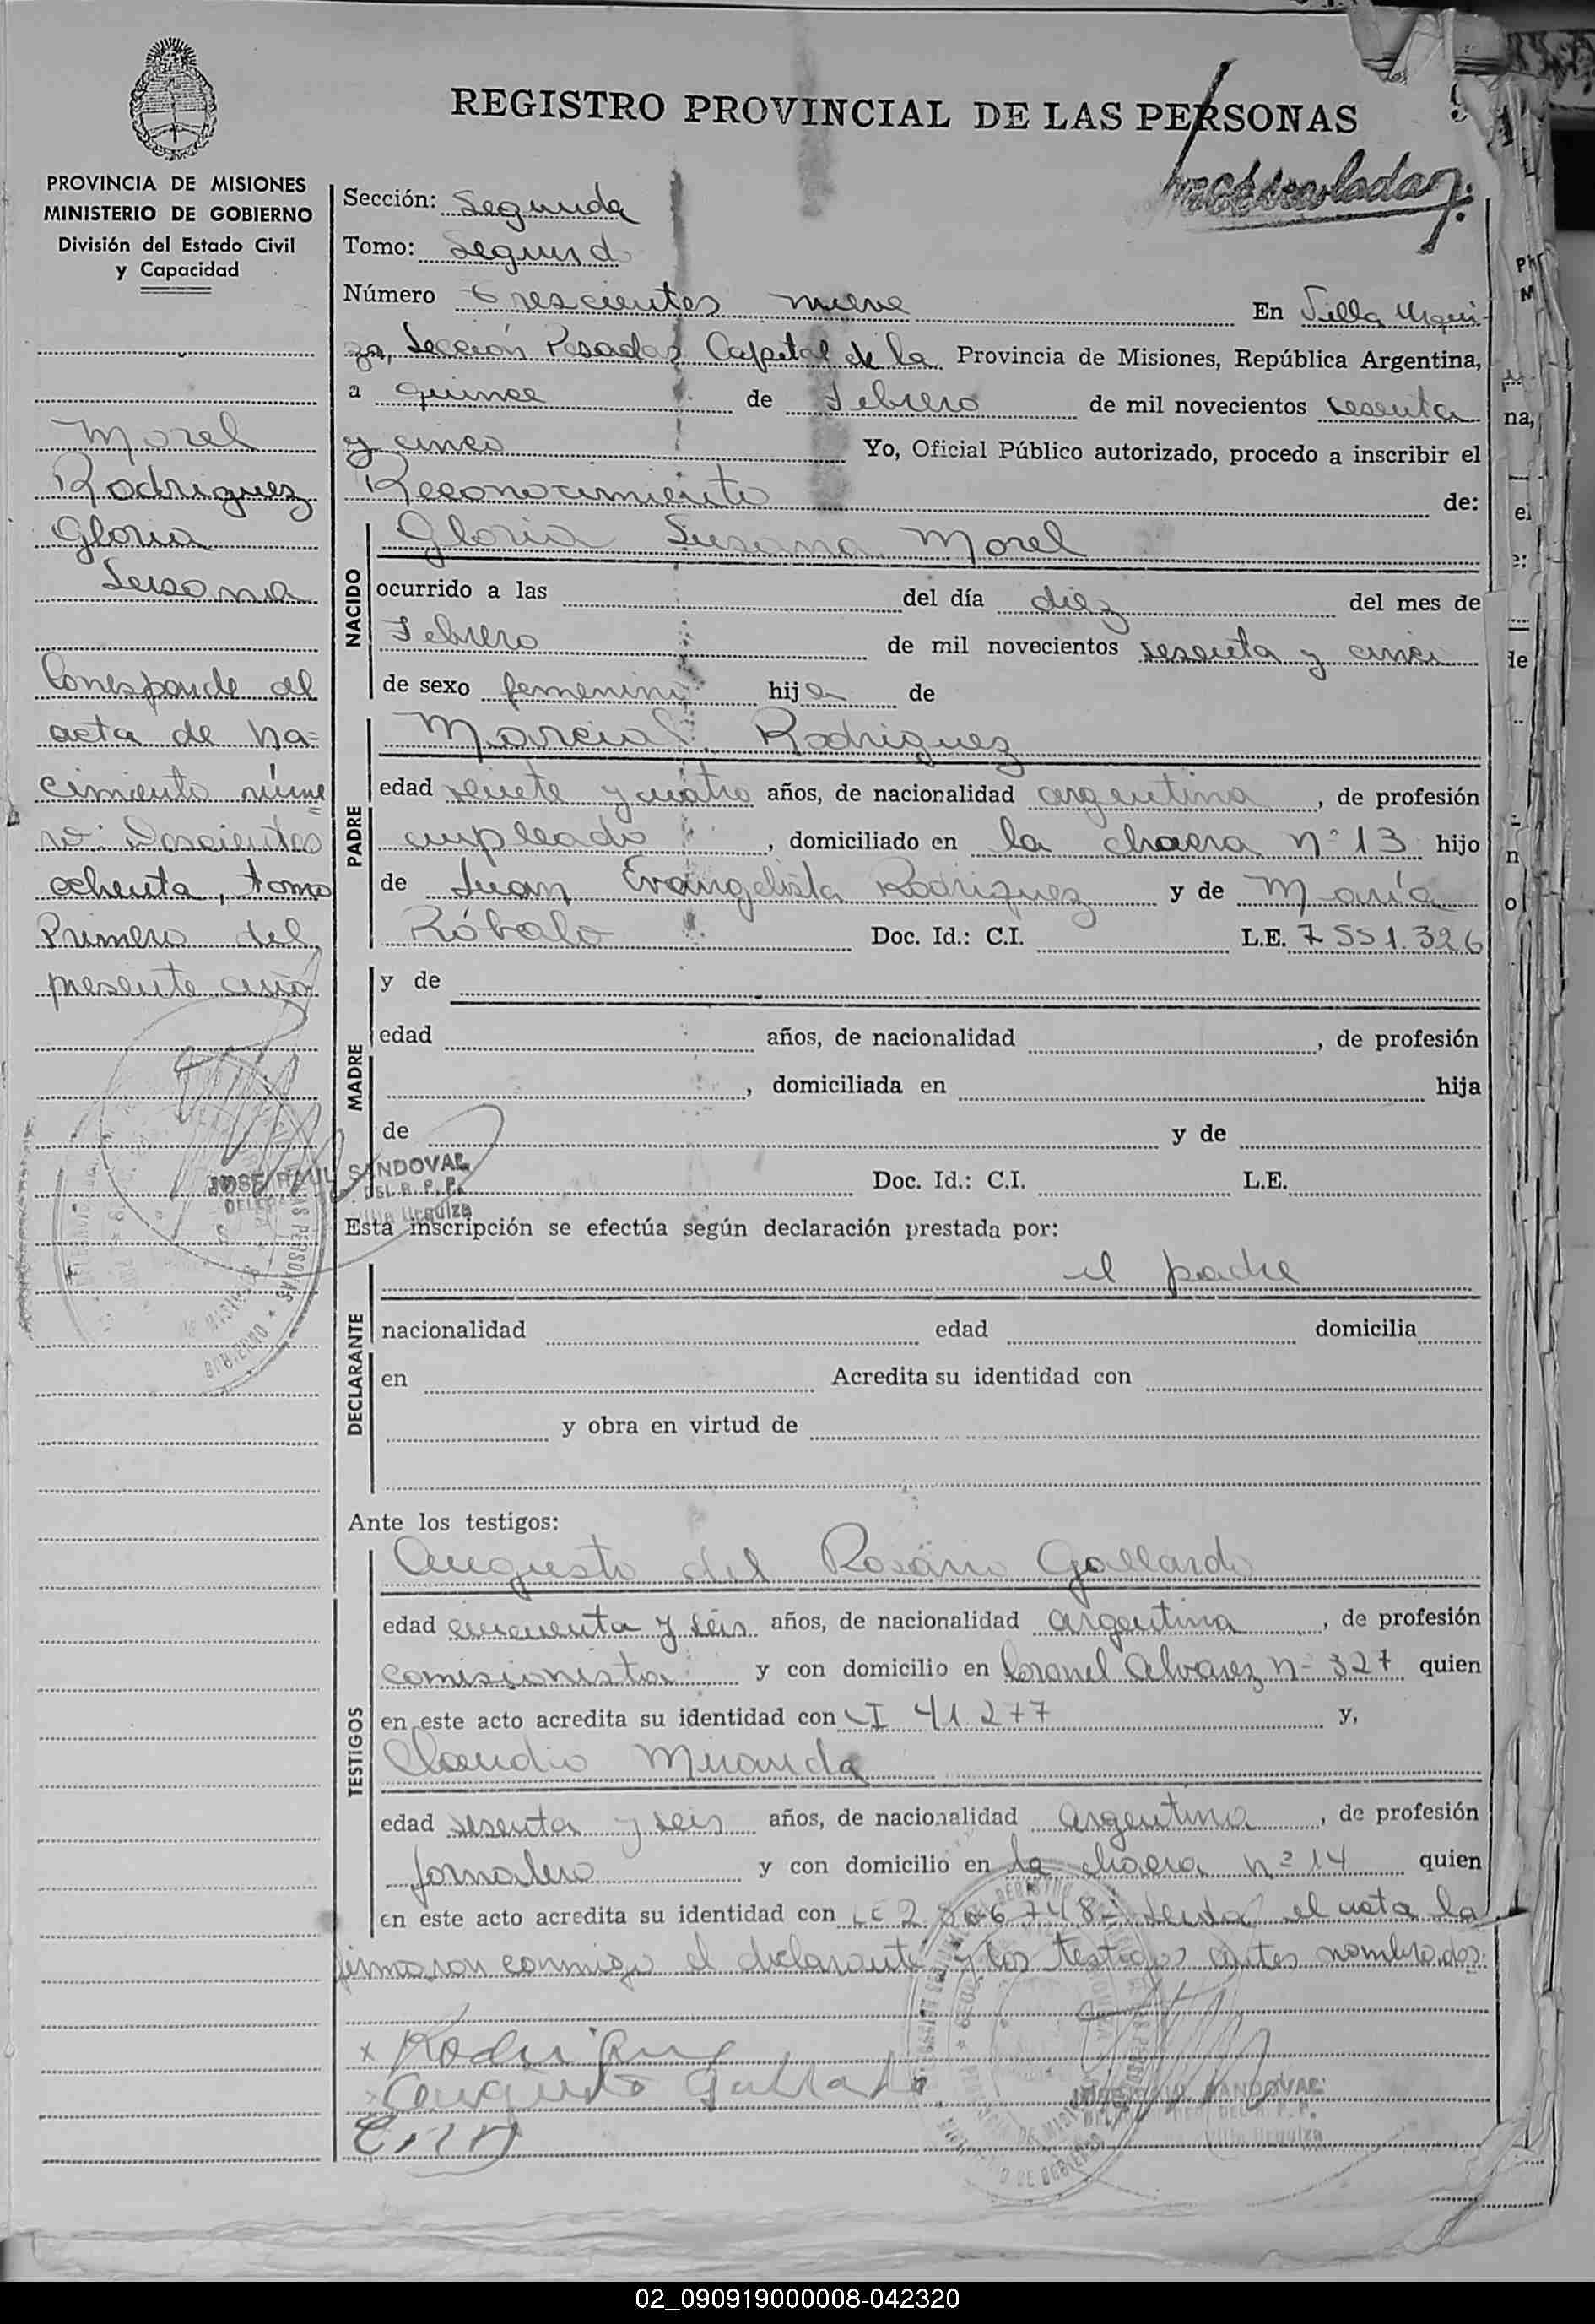 REGISTRO PROVINCIAL DE LAS PERSONAS
PROVINCIA DE MISIONES
MINISTERIO DE GOBIERNO
División del Estado Civil
y Capacidad
Morel
Rodriguez
Gloria
Susana
Corresponde al
acta de na=
cimiento núme
ro: Doscientos
ochenta, tomo
Primero del
presente año
JOSE RAUL SANDOVAL
DEL R. P. P.
Villa Urquiza
Sección: Segunda
Tomo: Segund
Número Trescientos nueve En Villa Urqui-
za, Sección Posadas Capital de la Provincia de Misiones, República Argentina,
a quince de Febrero de mil novecientos sesenta
y cinco Yo, Oficial Público autorizado, procedo a inscribir el
Reconocimiento de:
NACIDO
Gloria Susana Morel
ocurrido a las del día diez del mes de
Febrero de mil novecientos sesenta y cinco
de sexo femenino hija de
PADRE
Marcial Rodriguez
edad y cuatro años, de nacionalidad argentina, de profesión
empleado, domiciliado en la chacra nº 13 hijo
de Juan Evangelista Rodriguez y de María
Róbalo Doc. Id.: C.I. L.E. 7551.326
MADRE
y de
edad años, de nacionalidad , de profesión
, domiciliada en hija
de y de
Doc. Id.: C.I. L.E.
Esta inscripción se efectúa según declaración prestada por:
DECLARANTE
el padre
nacionalidad edad domicilia
en Acredita su identidad con
y obra en virtud de
Ante los testigos:
TESTIGOS
Augusto del Rosario Gallardo
edad cincuenta y seis años, de nacionalidad argentina, de profesión
comisionista y con domicilio en Coronel Alvarez nº 327 quien
en este acto acredita su identidad con CI 41277 y,
Claudio Miranda
edad sesenta y seis años, de nacionalidad argentina, de profesión
jornalero y con domicilio en la chacra nº 14 quien
en este acto acredita su identidad con LE el acta la
firmaron conmigo el declarante y los testigos antes nombrados.
x Rodriguez
Augusto Gallardo
JOSE RAUL SANDOVAL
Villa Urquiza
02_090919000008-042320